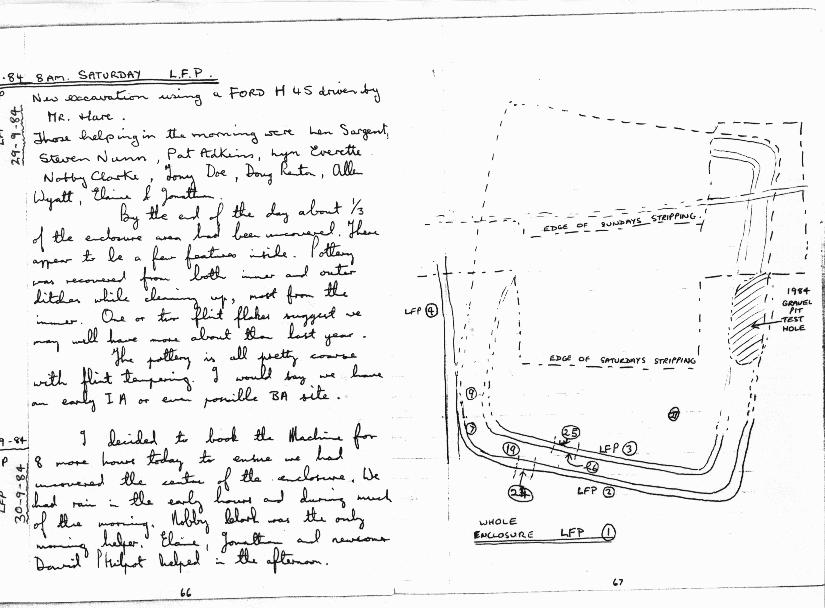 .84 8AM. SATURDAY L.F.P.
29-9-84
New excavation using a FORD H 45 driven by
Mr. Hare.
Those helping in the morning were Len Sargent,
Steven Nunn, Pat Adkins, Lyn Everette
Nobby Clarke, Tony Doe, Doug Renton, Allen
Wyatt, Elaine & Jonathan.
By the end of the day about 1/3
of the enclosure area had been uncovered. There
appear to be a few features inside. Pottery
was recovered from both inner and outer
ditches while cleaning up, most from the
inner. One or two flint flakes suggest we
may well have more about than last year.
The pottery is all pretty coarse
with flint tempering. I would say we have
an early IA or even possible BA site.
9-84
LFP 30-9-84
I decided to book the Machine for
8 more hours today to ensure we had
uncovered the centre of the enclosure. We
had rain in the early hours and during much
of the morning. Nobby Clark was the only
morning helper. Elaine, Jonathan and newcomer
David Philpot helped in the afternoon.
66
EDGE OF SUNDAYS STRIPPING
1984
GRAVEL
PIT
TEST
HOLE
LFP 4
EDGE OF SATURDAYS STRIPPING
9
7
19
25
LFP 3
26
24
LFP 2
WHOLE
ENCLOSURE LFP 1
67